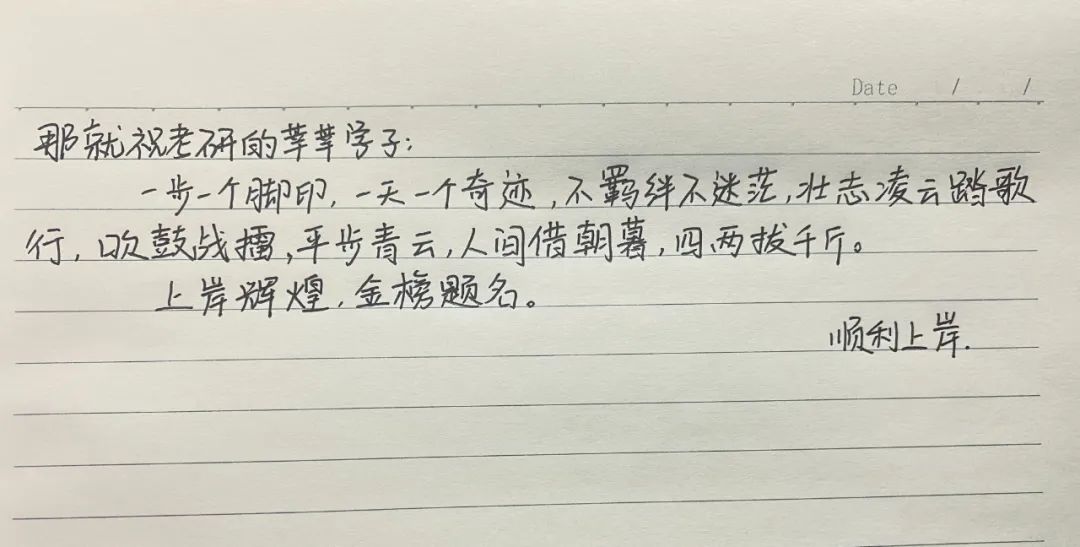 Date / /
那就祝考研的莘莘学子:
一步一个脚印,一天一个奇迹,不羁绊不迷茫,壮志凌云踏歌
行,吹鼓战擂,平步青云,人间借朝暮,四两拔千斤。
上岸辉煌,金榜题名。
顺利上岸.